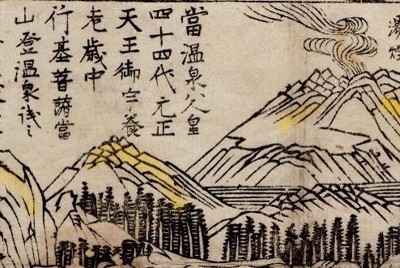 當温泉人皇
四十四代元正
天王御宇養
老歳中
行基菩薩當
山登温泉